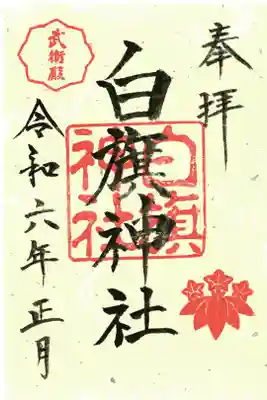 奉拝
白旗神社
白旗神社
武術殿
令和六年正月